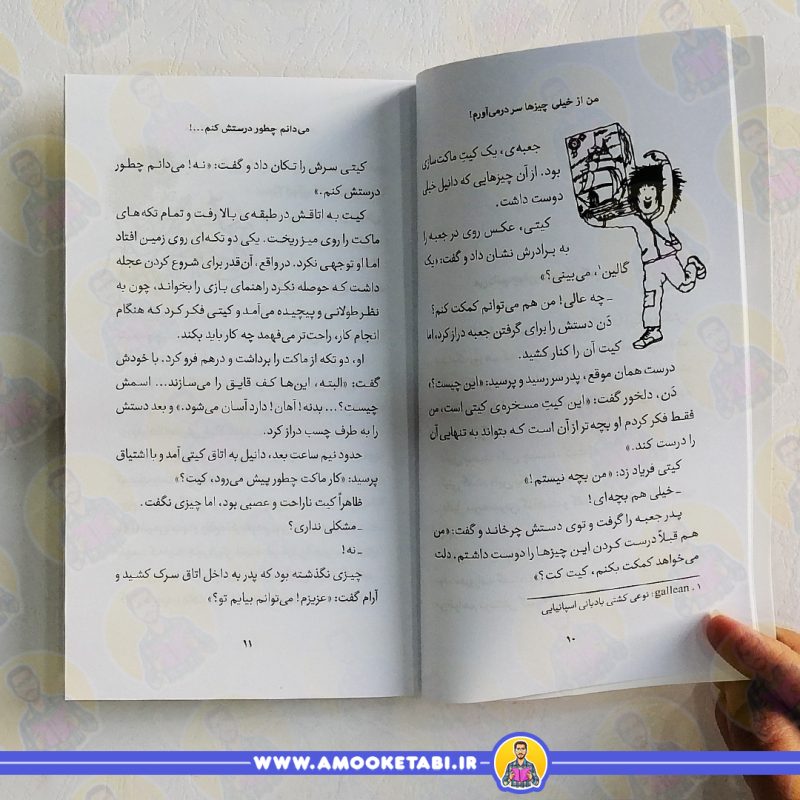 من از خیلی چیزها سر درمی‌آورم!
جعبه‌ی، یک کیتِ ماکت‌سازی
بود. از آن چیزهایی که دانیل خیلی
دوست داشت.
کیتی، عکس روی در جعبه را
به برادرش نشان داد و گفت: «یک
گالین۱، می‌بینی؟»
ـ چه عالی! من هم می‌توانم کمکت کنم؟
دَن دستش را برای گرفتن جعبه دراز کرد، اما
کیت آن را کنار کشید.
درست همان موقع، پدر سر رسید و پرسید: «این چیست؟»
دَن، دلخور گفت: «این کیتِ مسخره‌ی کیتی است، من
فقط فکر کردم او بچه‌تر از آن است که بتواند به تنهایی آن
را درست کند.»
کیتی فریاد زد: «من بچه نیستم!»
ـ خیلی هم بچه‌ای!
پدر جعبه را گرفت و توی دستش چرخاند و گفت: «من
هم قبلاً درست کردن این چیزها را دوست داشتم. دلت
می‌خواهد کمکت بکنم، کیت کت؟»
۱. gallean: نوعی کشتی بادبانی اسپانیایی
۱۰
می‌دانم چطور درستش کنم...!
کیتی سرش را تکان داد و گفت: «نه! می‌دانم چطور
درستش کنم.»
کیت به اتاقش در طبقه‌ی بالا رفت و تمام تکه‌های
ماکت را روی میز ریخت. یکی دو تکه‌ای روی زمین افتاد
اما او توجهی نکرد. در واقع، آن‌قدر برای شروع کردن عجله
داشت که حوصله نکرد راهنمای بازی را بخواند، چون به
نظر طولانی و پیچیده می‌آمد و کیتی فکر کرد که هنگام
انجام کار، راحت‌تر می‌فهمد چه کار باید بکند.
او، دو تکه از ماکت را برداشت و درهم فرو کرد. با خودش
گفت: «البته، این‌ها کف قایق را می‌سازند... اسمش
چیست؟... بدنه! آهان! دارد آسان می‌شود.» و بعد دستش
را به طرف چسب دراز کرد.
حدود نیم ساعت بعد، دانیل به اتاق کیتی آمد و با اشتیاق
پرسید: «کار ماکت چطور پیش می‌رود، کیت؟»
ظاهراً کیت ناراحت و عصبی بود، اما چیزی نگفت.
ـ مشکلی نداری؟
ـ نه!
چیزی نگذشته بود که پدر به داخل اتاق سرک کشید و
آرام گفت: «عزیزم! می‌توانم بیایم تو؟»
۱۱
WWW.AMOOKETABI.IR